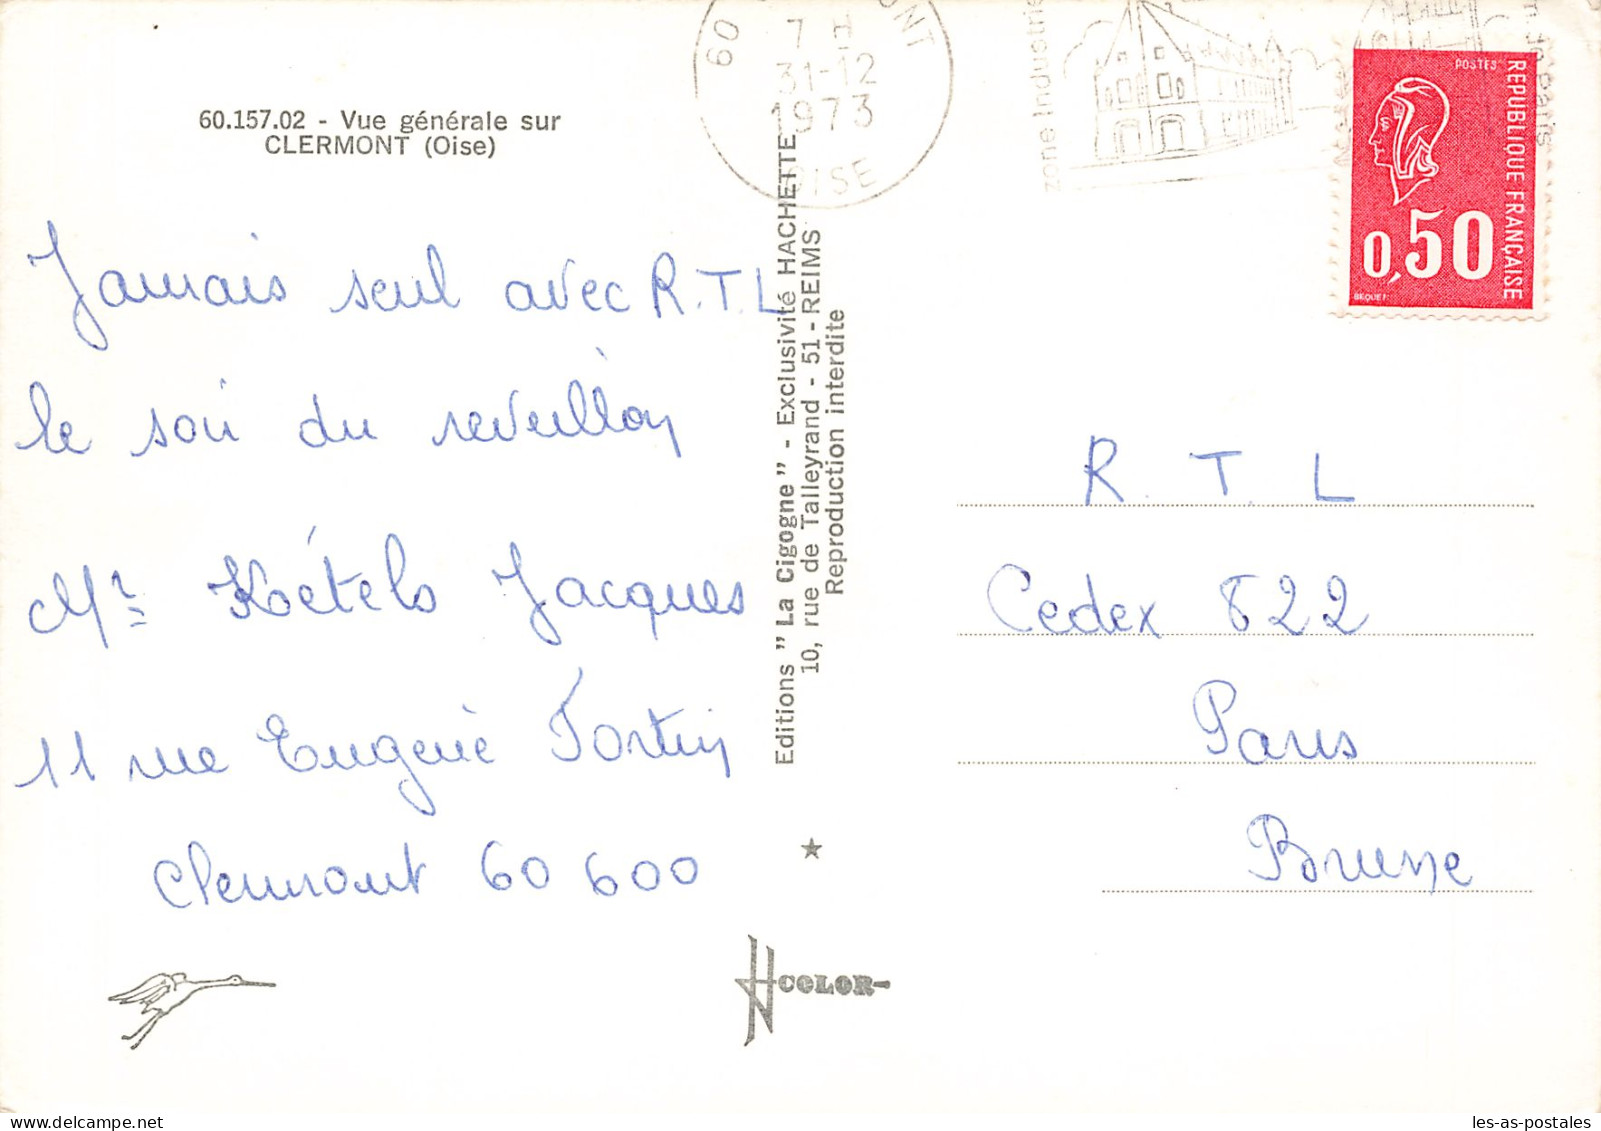 60.157.02 - Vue générale sur
CLERMONT (Oise)
Jamais seul avec R.T.L
le soir du reveillon
Mr Kétels Jacques
11 rue Eugenie Fortin
Clermont 60 600
Editions " La Cigogne " - Exclusivité HACHETTE
10, rue de Talleyrand - 51 - REIMS
Reproduction interdite
COLOR
60
ONT
7 H
31-12
1973
OISE
zone Industrie
Paris
POSTES
REPUBLIQUE FRANÇAISE
0,50
BEQUET
R. T. L
Cedex 822
Paris
Brune
les-as-postales